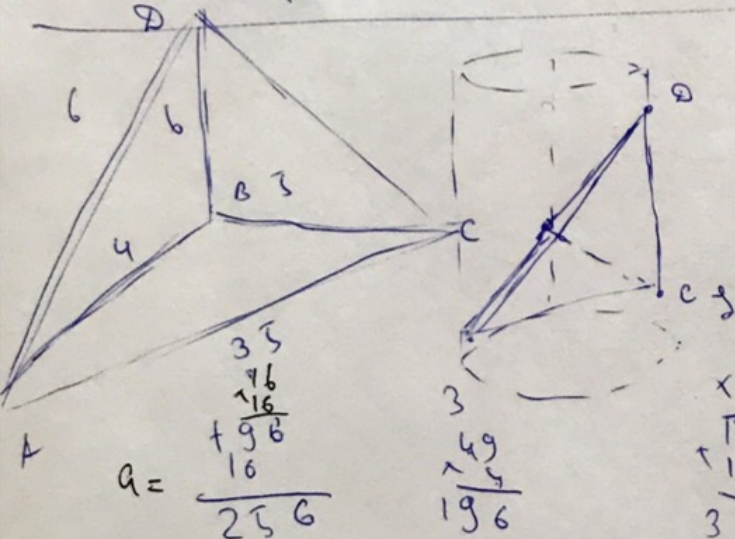 D
6
6
B 5
C
4
A
D
C
35
16
×16
+96
16
256
a =
3
×49
4
196
3